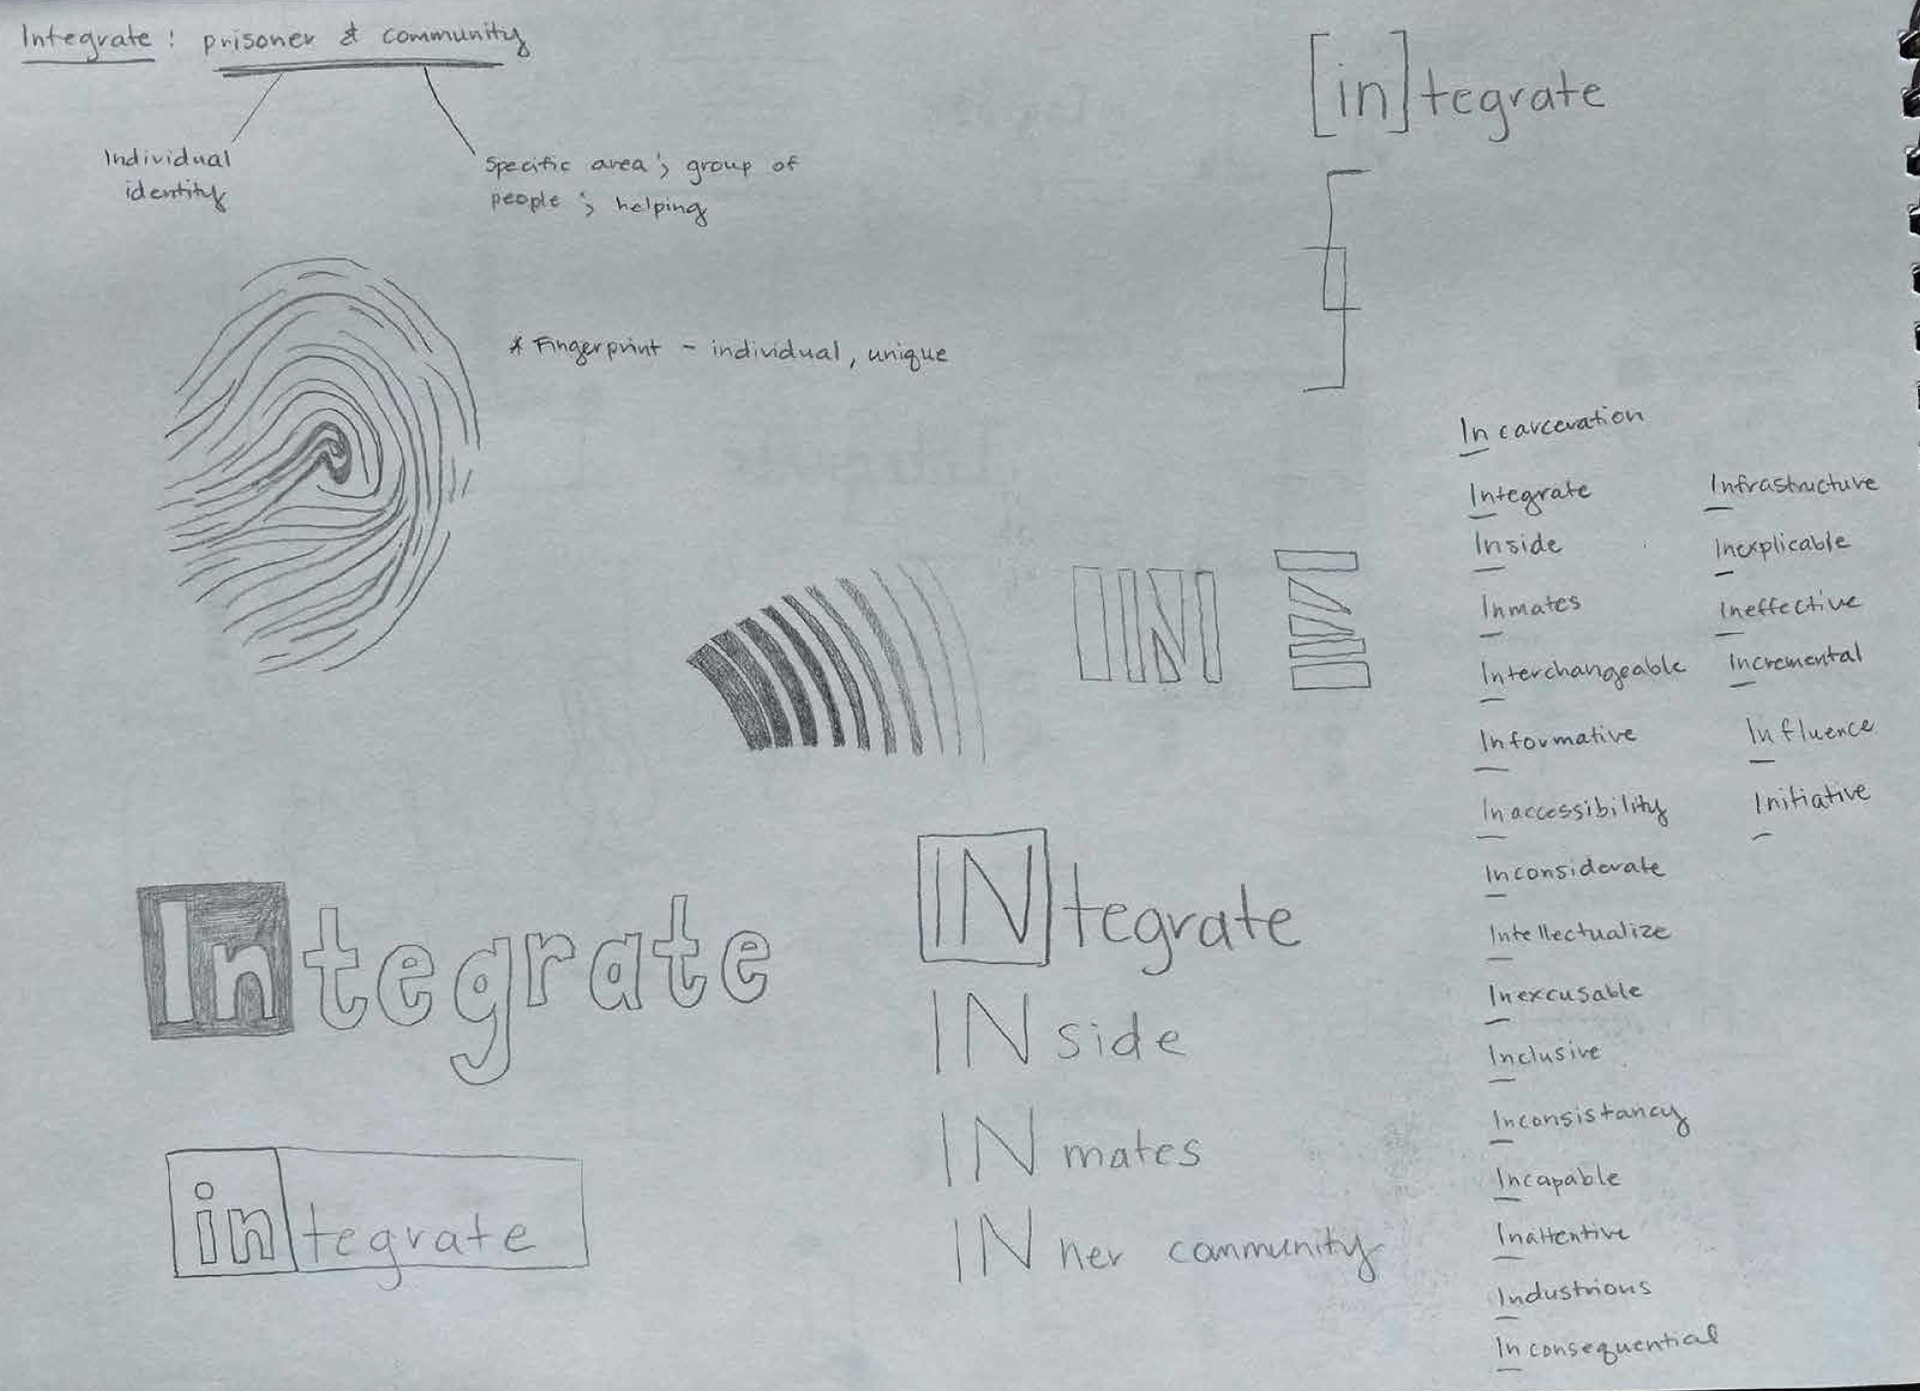 Integrate : prisoner & community
Individual
identity
Specific area ; group of
people ; helping
* Fingerprint - individual, unique
[in]tegrate
IN
IN
Integrate
integrate
INtegrate
INside
INmates
INner community
Incarceration
Integrate
Inside
Inmates
Interchangeable
Informative
Inaccessibility
Inconsiderate
Intellectualize
Inexcusable
Inclusive
Inconsistancy
Incapable
Inattentive
Industrious
Inconsequential
Infrastructure
Inexplicable
Ineffective
Incremental
Influence
Initiative